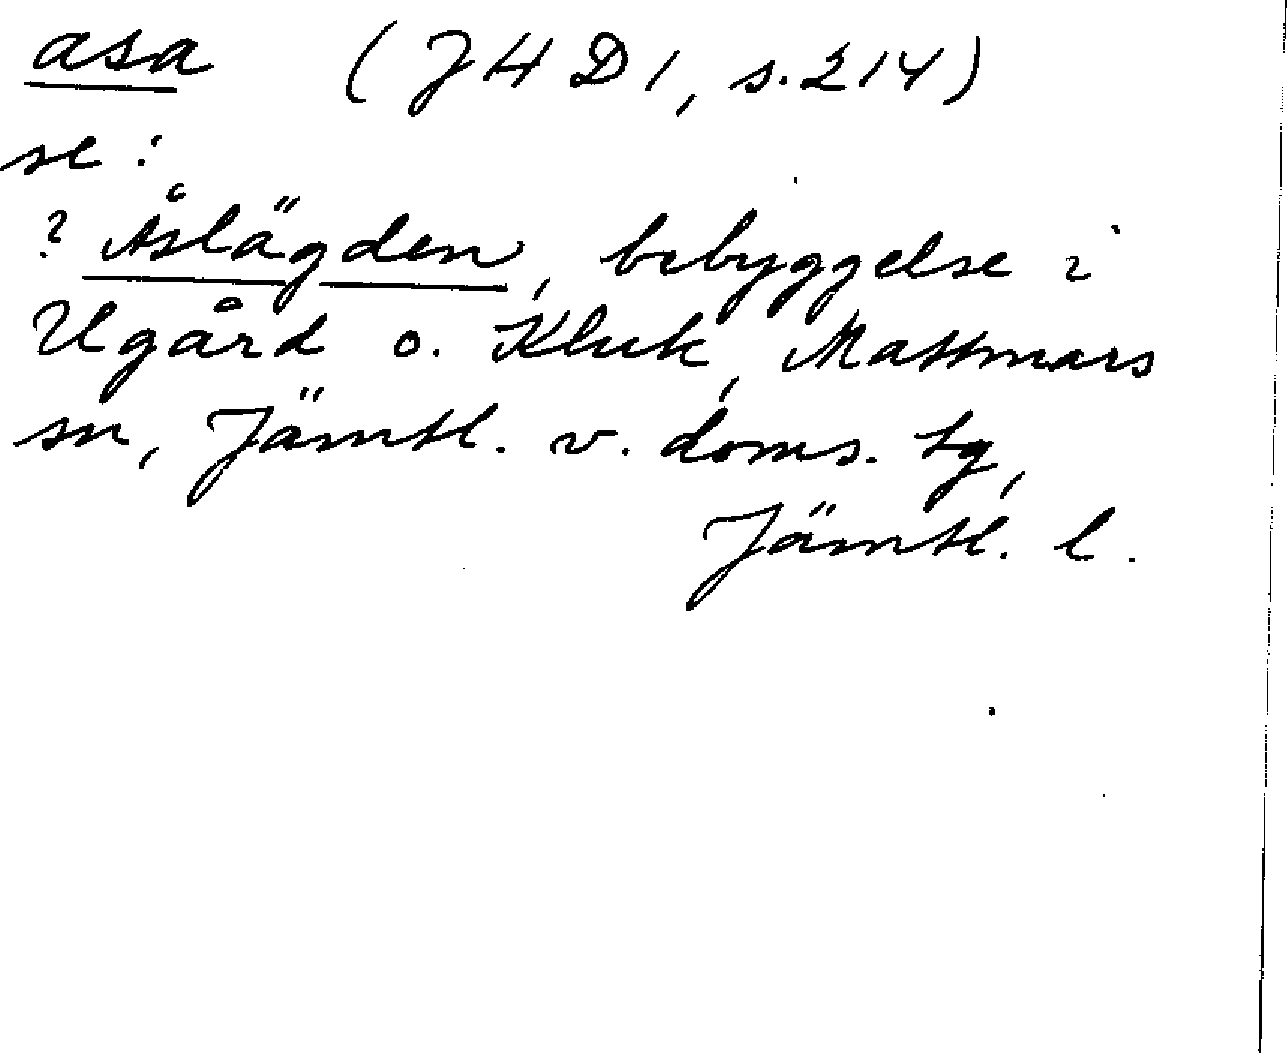 asa (JHD 1, s. 214)
se:
? Åslägden, bebyggelse i
Ugård o. Kluk, Mattmars
sn, Jämtl. v. doms. tg,
Jämtl. l.